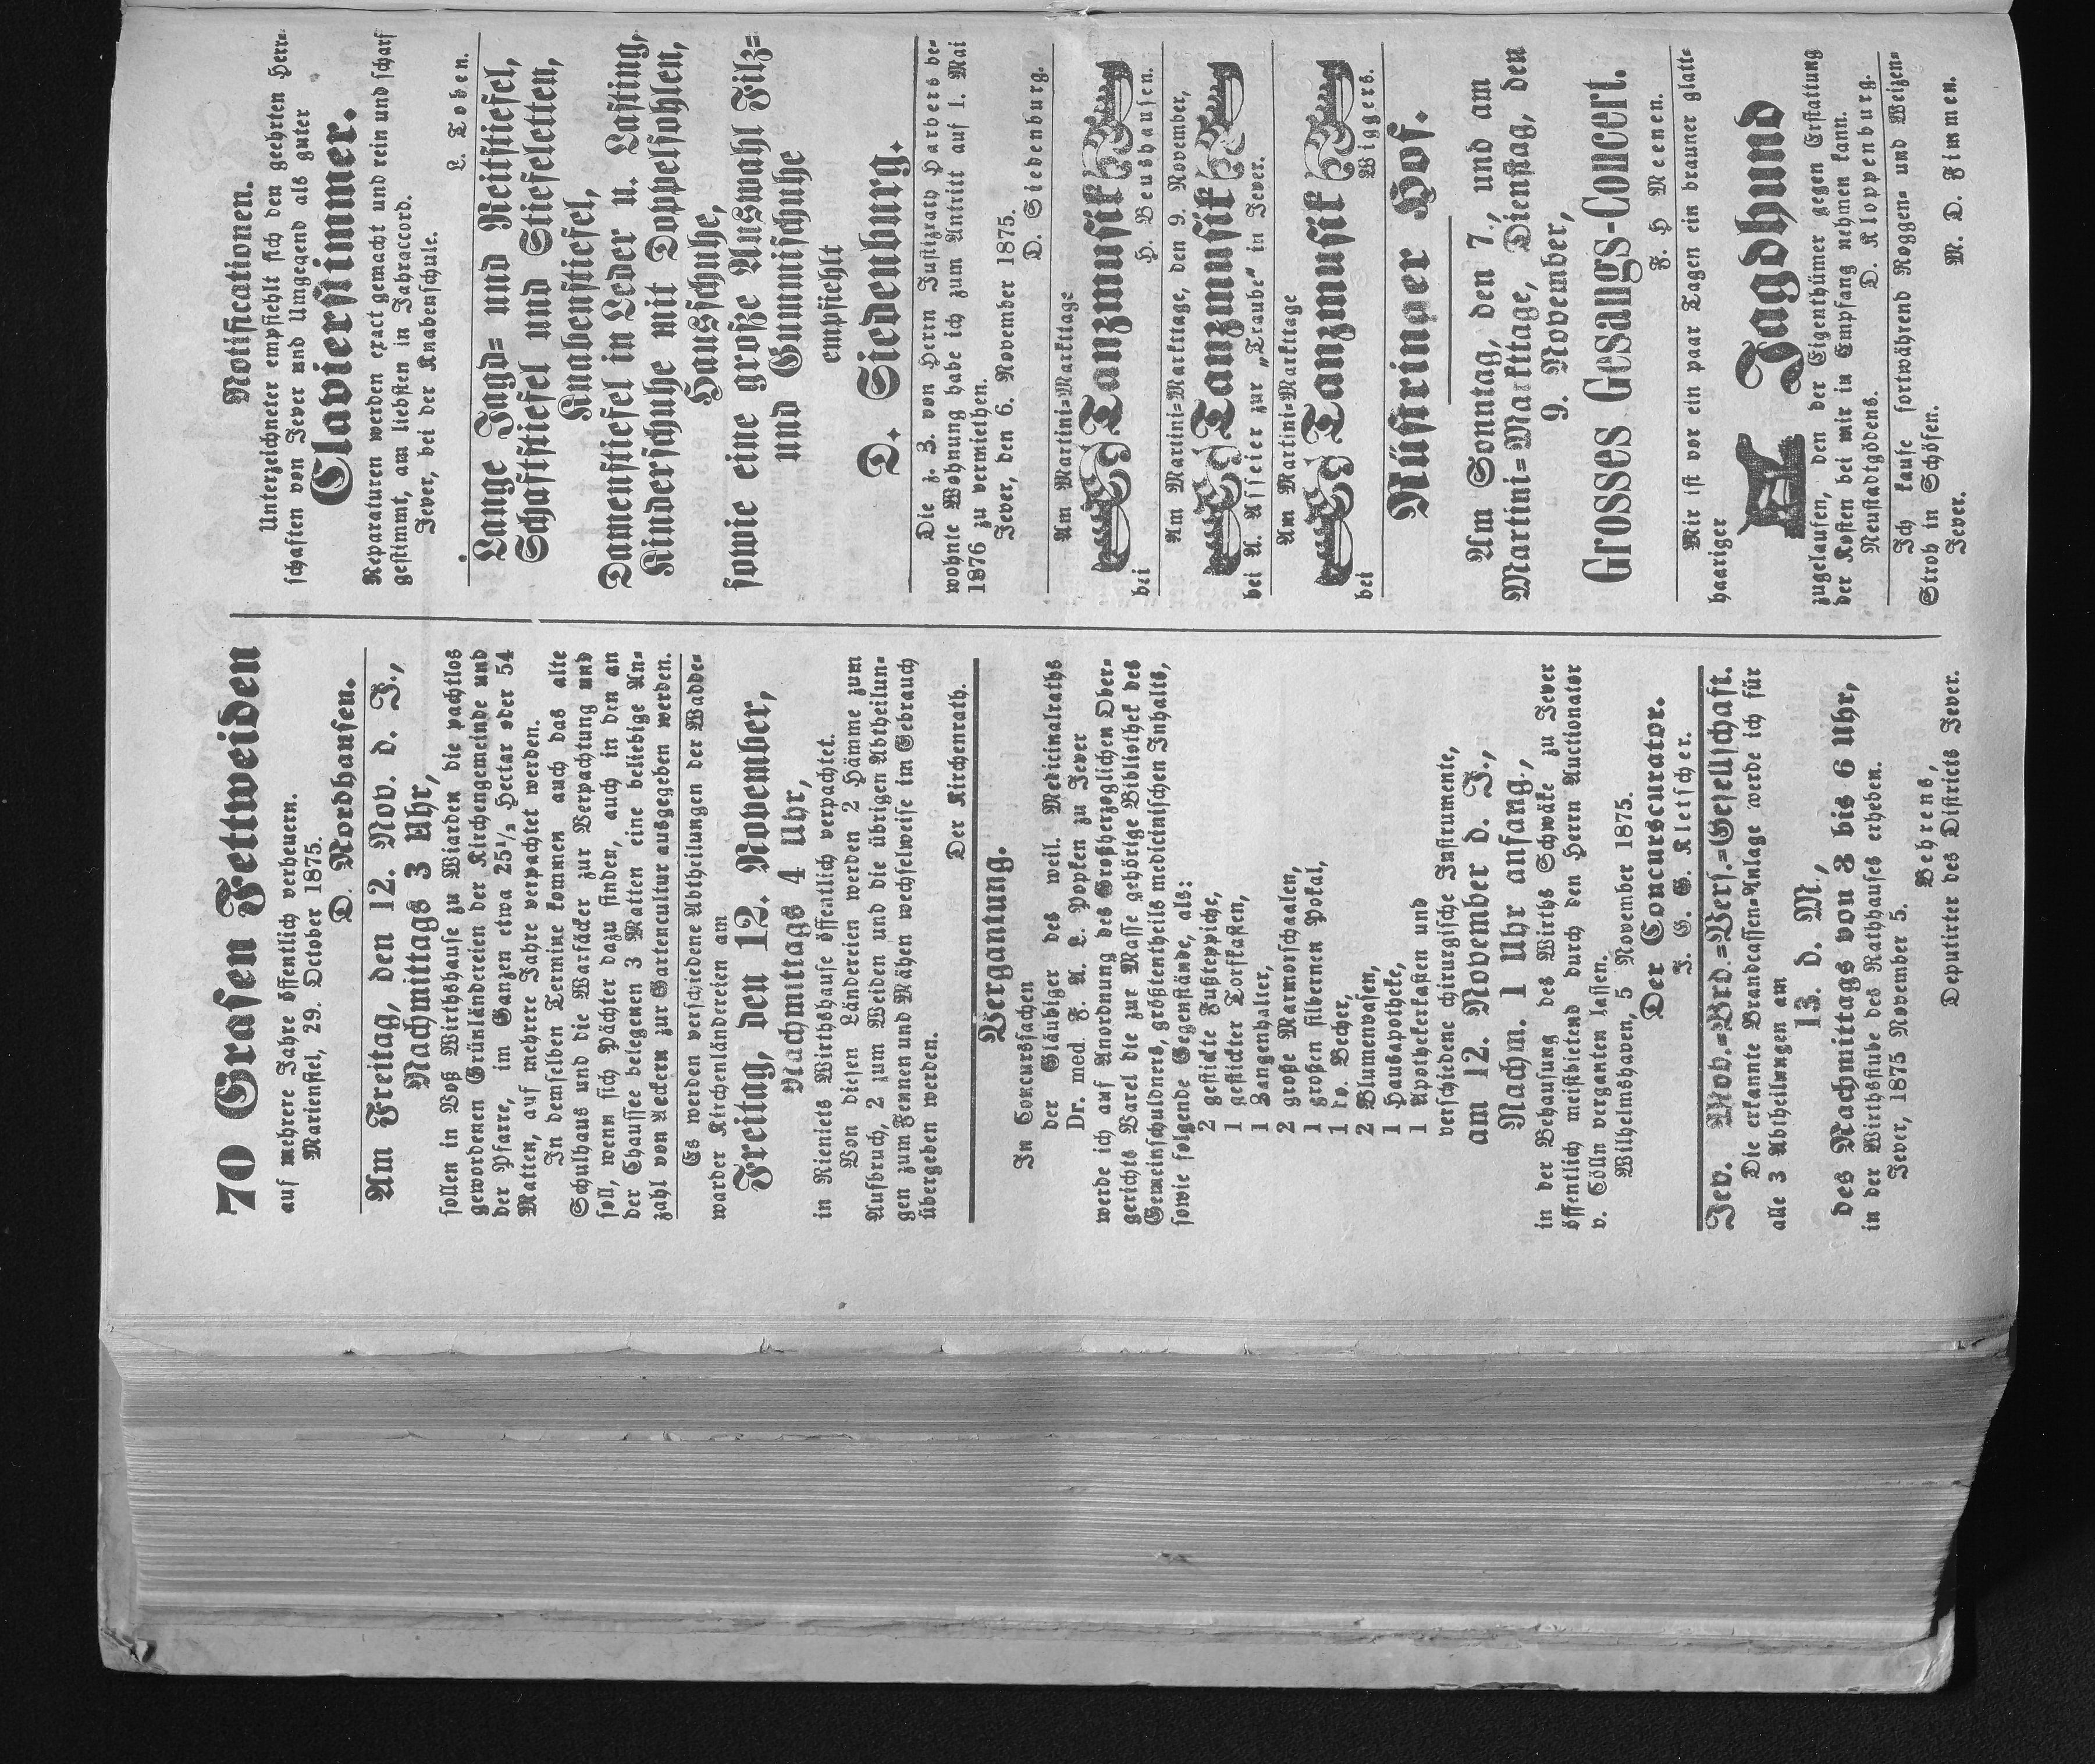 70 Grasen Fettweiden
auf mehrere Jahre öffentlich verheuern.
Mariensiel, 29. October 1875.
D. Nordhausen.
Am Freitag, den 12. Nov. d. J.,
Nachmittags 3 Uhr,
sollen in Voß Wirthshause zu Wiarden die pachtlos
gewordenen Grünländereien der Kirchengemeinde und
der Pfarre, im Ganzen etwa 25½ Hectar oder 54
Matten, auf mehrere Jahre verpachtet werden.
In demselben Termine kommen auch das alte
Schulhaus und die Warfäcker zur Verpachtung und
soll, wenn sich Pächter dazu finden, auch in den an
der Chaussee belegenen 3 Matten eine beliebige An-
zahl von Aeckern zur Gartencultur ausgegeben werden.
Es werden verschiedene Abtheilungen der Wadde-
warder Kirchenländereien am
Freitag, den 12. November,
Nachmittags 4 Uhr,
in Rieniets Wirthshause öffentlich verpachtet.
Von diesen Ländereien werden 2 Hämme zum
Aufbruch, 2 zum Weiden und die übrigen Abtheilun-
gen zum Fennen und Mähen wechselweise im Gebrauch
übergeben werden.
Der Kirchenrath.
Vergantung.
In Concurssachen
der Gläubiger des weil. Medicinalraths
Dr. med. F. A. L. Popken zu Jever
werde ich auf Anordnung des Großherzoglichen Ober-
gerichts Varel die zur Masse gehörige Bibliothek des
Gemeinschuldners, größtentheils medicinischen Inhalts,
sowie folgende Gegenstände, als:
2 gestickte Fußteppiche,
1 gestickter Torfkasten,
1 Zangenhalter,
2 große Marmorschaalen,
1 großen silbernen Pokal,
1 do. Becher,
2 Blumenvasen,
1 Hausapotheke,
1 Apothekerkasten und
verschiedene chirurgische Instrumente,
am 12. November d. J.,
Nachm. 1 Uhr anfang.,
in der Behausung des Wirths Schwäke zu Jever
öffentlich meistbietend durch den Herrn Auctionator
v. Cölln verganten lassen.
Wilhelmshaven, 5 November 1875.
Der Concurscurator.
J. G. G. Kletscher.
Jev. Mob.=Brd.=Vers.=Gesellschaft.
Die erkannte Brandcassen-Anlage werde ich für
alle 3 Abtheilungen am
13. d. M.,
des Nachmittags von 3 bis 6 Uhr,
in der Wirthsstube des Rathhauses erheben.
Jever, 1875 November 5.
Behrens,
Deputirter des Districts Jever.
Notificationen.
Unterzeichneter empfiehlt sich den geehrten Herr-
schaften von Jever und Umgegend als guter
Claviersimmer.
Reparaturen werden exact gemacht und rein und scharf
gestimmt, am liebsten in Jahraccord.
Jever, bei der Knabenschule.
L. Toben.
Lange Jagd= und Reitstiefel,
Schaftstiefel und Stiefeletten,
Knabenstiefel,
Damenstiefel in Leder u. Lasting,
Kinderschuhe mit Doppelsohlen,
Hausschuhe,
sowie eine große Auswahl Filz=
und Gummischuhe
empfiehlt
D. Siedenburg.
Die z. Z. von Herrn Justizrath Harbers be-
wohnte Wohnung habe ich zum Antritt auf 1. Mai
1876 zu vermiethen.
Jever, den 6. November 1875.
D. Siedenburg.
Am Martini=Markttage
Tanzmusik
bei H. Beushausen.
Am Martini=Markttage, den 9. November,
Tanzmusik
bei A. Asseier zur „Traube“ in Jever.
Am Martini=Markttage
Tanzmusik
bei Wiggers.
Rüstringer Hof.
Am Sonntag, den 7., und am
Martini=Markttage, Dienstag, den
9. November,
Grosses Gesangs-Concert.
F. H Meenen.
Mir ist vor ein paar Tagen ein brauner glatt-
haariger
Jagdhund
zugelaufen, den der Eigenthümer gegen Erstattung
der Kosten bei mir in Empfang nehmen kann.
Neustadtgödens. D. Kloppenburg.
Ich kaufe fortwährend Roggen= und Weizen=
Stroh in Schöfen.
Jever. M. D. Fimmen.